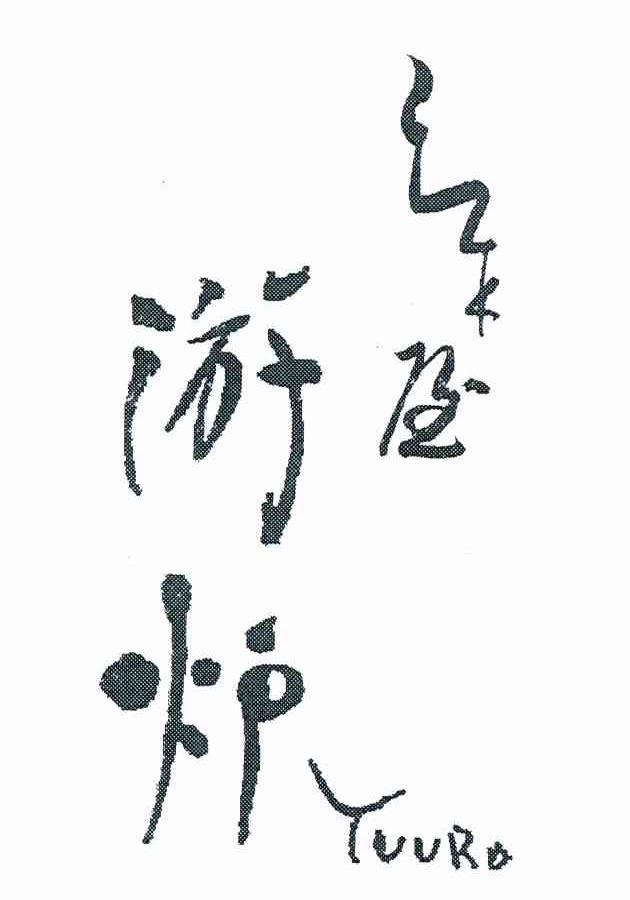 糸屋
游炉
YUURO